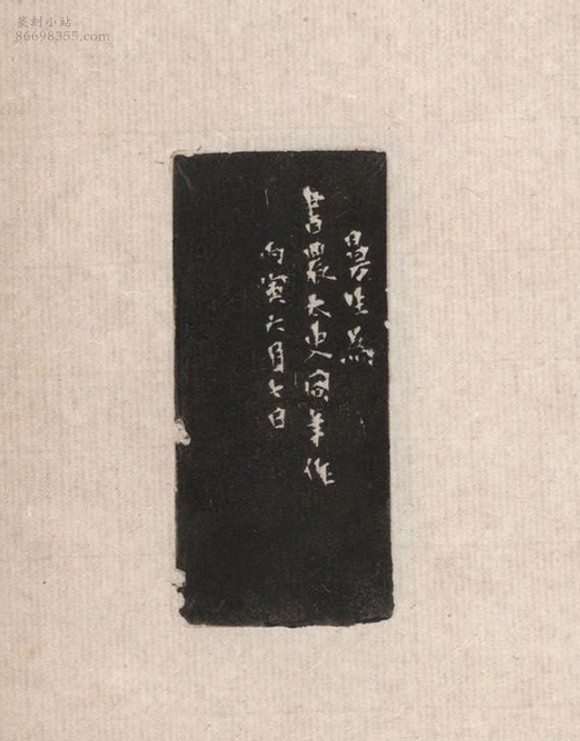 篆刻小站
86698355.com
曼生為
書農太史同年作
丙寅六月七日